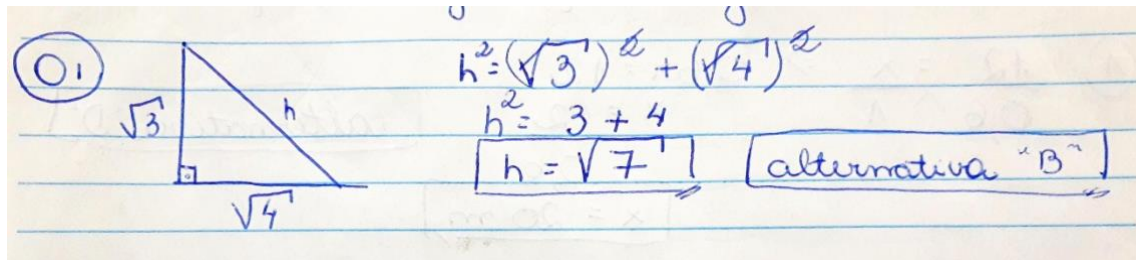 01
√3
h
√4
h² = (√3)² + (√4)²
h² = 3 + 4
h = √7
alternativa "B"